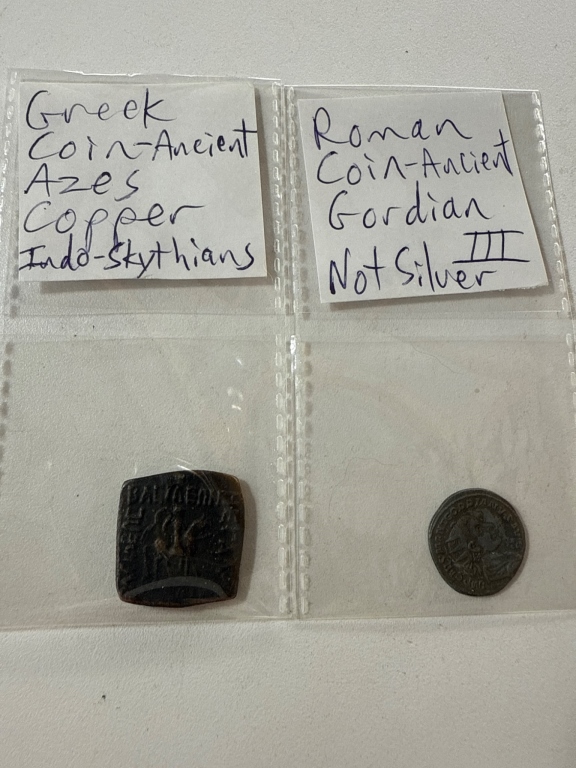 Greek
Coin-Ancient
Azes
Copper
Indo-Skythians
Roman
Coin-Ancient
Gordian
III
Not Silver